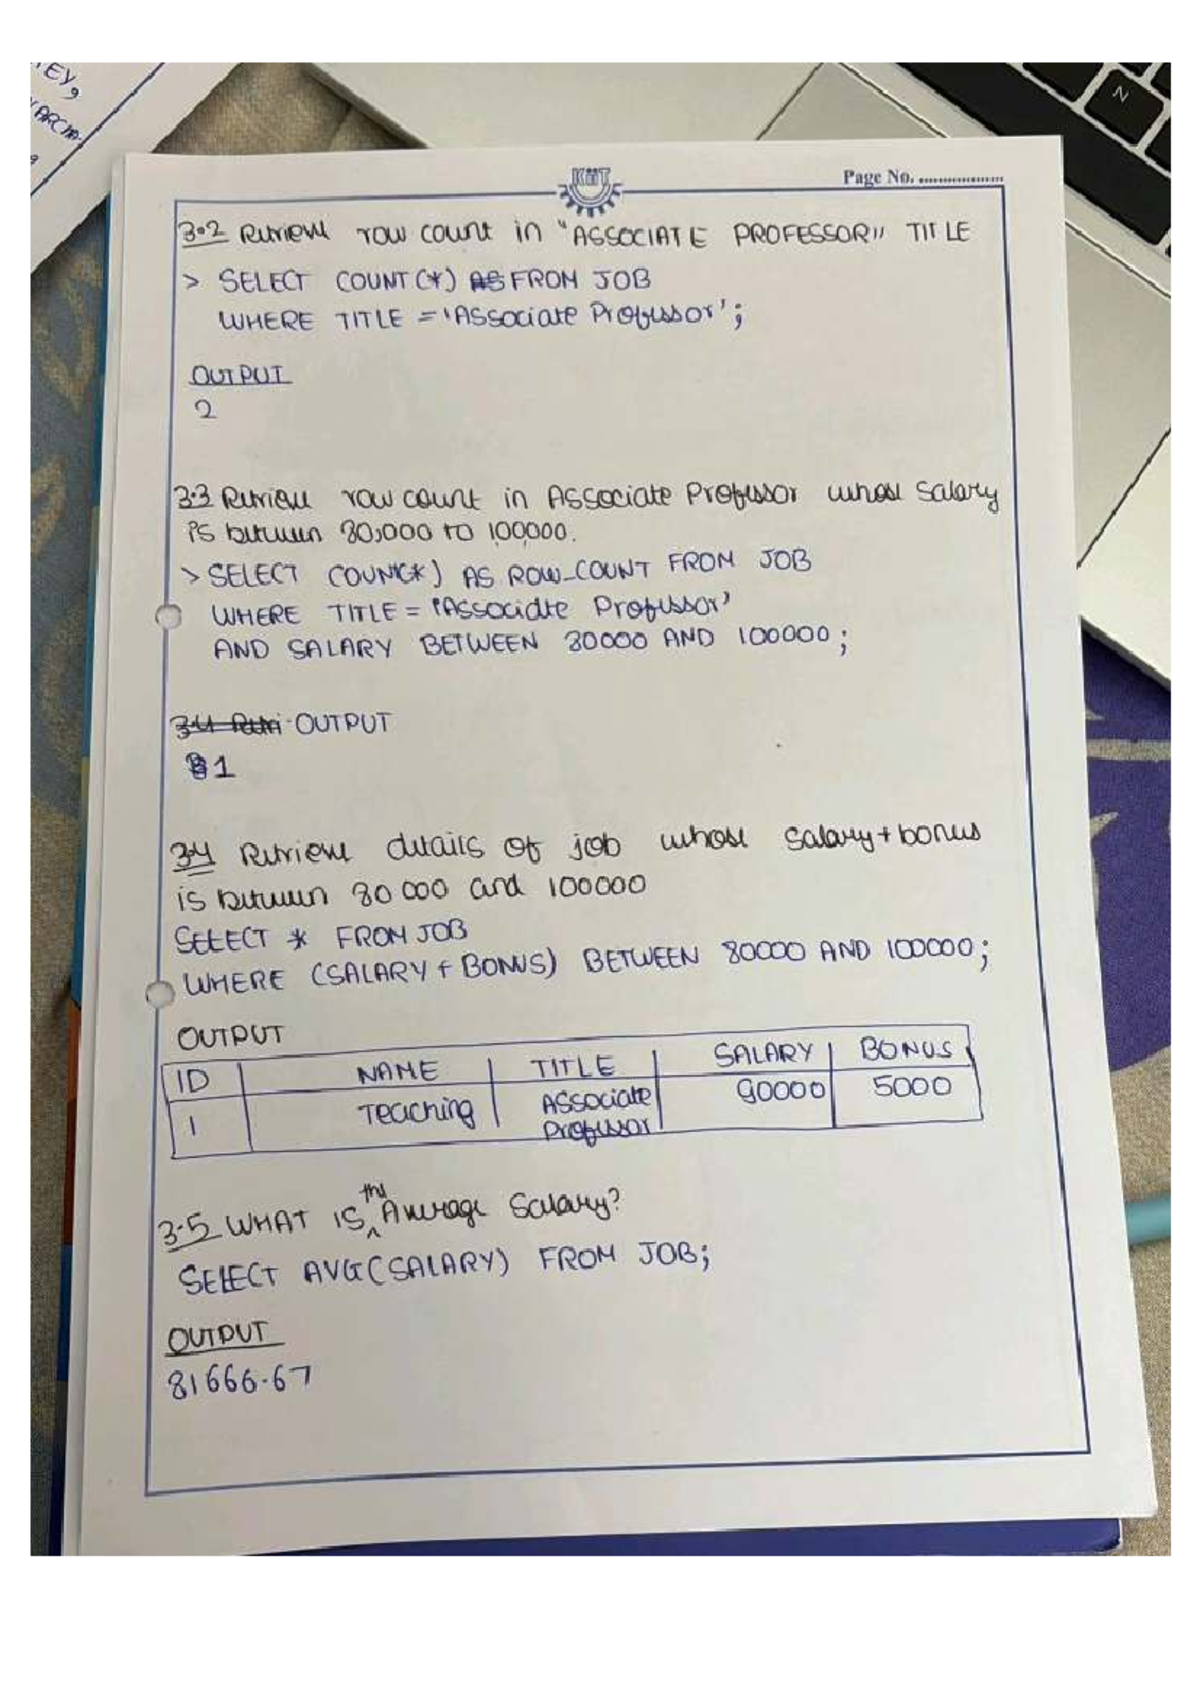 EY,
VARCHA
N
KIIT
Page No. ..................
3.2 Retrieve row count in "ASSOCIATE PROFESSOR" TITLE
> SELECT COUNT(*) AS FROM JOB
WHERE TITLE = 'Associate Professor';
OUTPUT
2
3.3 Retrieve row count in Associate Professor whose salary
is between 80,000 to 100000.
> SELECT COUNT(*) AS ROW_COUNT FROM JOB
WHERE TITLE = 'Associate Professor'
AND SALARY BETWEEN 80000 AND 100000;
3.4 Retri OUTPUT
1
3.4 Retrieve details of job whose salary+bonus
is between 80 000 and 100000
SELECT * FROM JOB
WHERE (SALARY + BONUS) BETWEEN 80000 AND 100000;
OUTPUT
ID NAME TITLE SALARY BONUS
1 Teaching Associate 90000 5000
Professor
3.5 WHAT IS the Average Salary?
SELECT AVG(SALARY) FROM JOB;
OUTPUT
81666.67